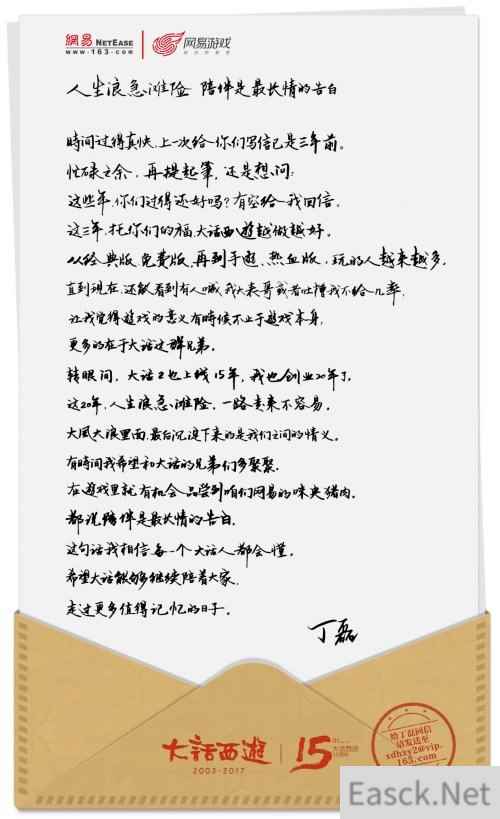 網易 NETEASE
www.163.com
网易游戏
人生浪急滩险 陪伴是最长情的告白
時间过得真快,上一次给你们写信已是三年前。
忙碌之余,再提起筆,还是想问:
这些年,你们过得还好吗?有空给我回信。
这三年,托你们的福,大话西遊越做越好。
从经典版、免费版、再到手遊、热血版,玩的人越来越多。
直到现在,还能看到有人喊我大表哥或者吐槽我不给几率,
让我觉得遊戏的意义有時候不止于遊戏本身,
更多的在于大话这群兄弟。
转眼间,大话2也上线15年,我也创业20年了。
这20年,人生浪急滩险,一路走来不容易。
大風大浪里面,最后沉淀下来的是我们之间的情义。
有時间我希望和大话的兄弟们多聚聚。
在遊戏里就有机会品尝到咱们网易的味央猪肉。
都说陪伴是最长情的告白,
这句话我相信每一个大话人都会懂。
希望大话能够继续陪着大家,
走过更多值得记忆的日子。
丁磊
大话西遊
2002-2017
15
给丁磊回信
请发送至
xdhxy2@vip.
163.com
Easck.Net